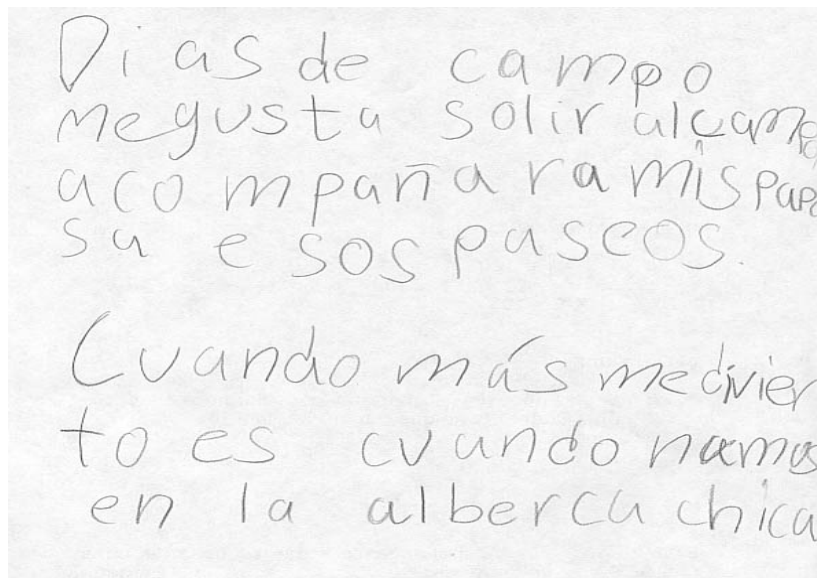 Dias de campo
megusta solir alcampo
acompañar a mis papa
sa esos paseos.
Cuando más me divier
to es cuando namos
en la alberca chica